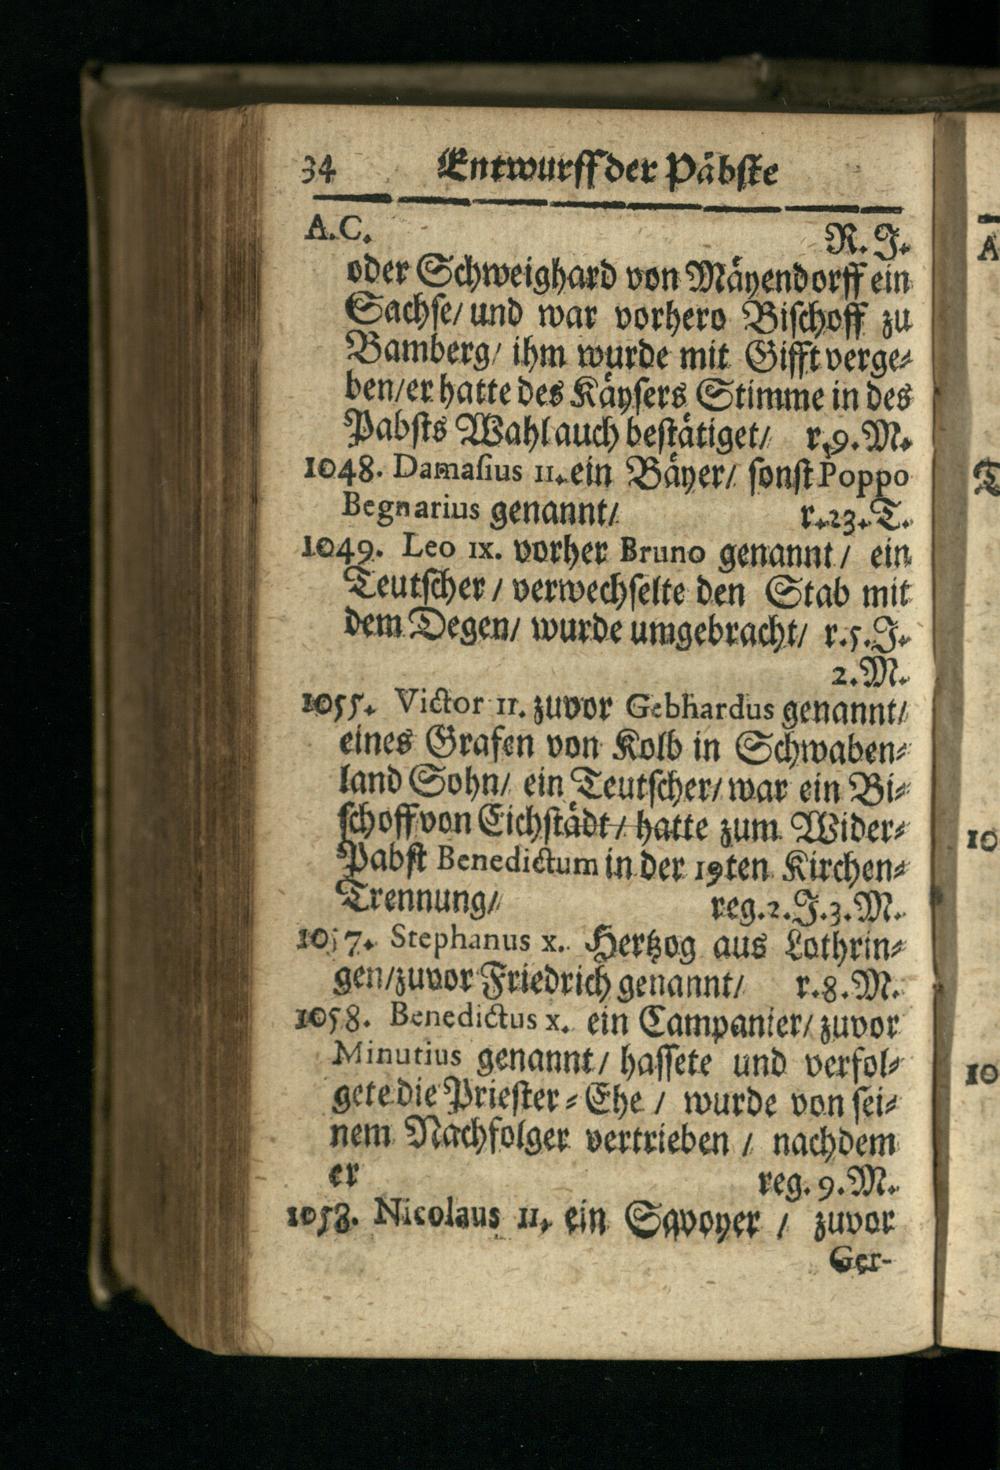 34 Entwurff der Päbste
A.C. R. J.
oder Schweighard von Mäyendorff ein
Sachse/ und war vorhero Bischoff zu
Bamberg/ ihm wurde mit Gifft verge⸗
ben/er hatte des Käysers Stimme in des
Pabsts Wahl auch bestätiget/ r.9.M.
1048. Damasius II. ein Bäyer/ sonst Poppo
Begnarius genannt/ r.23.T.
1049. Leo IX. vorher Bruno genannt/ ein
Teutscher/ verwechselte den Stab mit
dem Degen/ wurde umgebracht/ r.5.J.
2.M.
1055. Victor II. zuvor Gebhardus genannt/
eines Grafen von Kolb in Schwaben⸗
land Sohn/ ein Teutscher/ war ein Bi⸗
schoff von Eichstädt/ hatte zum Wider⸗
Pabst Benedictum in der 19ten Kirchen⸗
Trennung/ reg.2.J.3.M.
1057. Stephanus X. Hertzog aus Lothrin⸗
gen/zuvor Friedrich genannt/ r.8.M.
1058. Benedictus X. ein Campanier/ zuvor
Minutius genannt/ hassete und verfol⸗
gete die Priester⸗Ehe/ wurde von sei⸗
nem Nachfolger vertrieben/ nachdem
er reg. 9.M.
Nicolaus II. ein Savoyer/ zuvor
Ger-
A
T
10
10